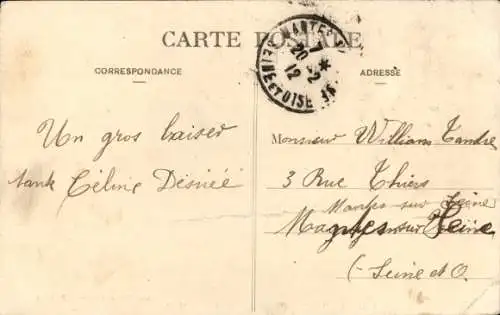 CARTE POSTALE
CORRESPONDANCE
ADRESSE
Un gros baiser
tante Céline Désirée
Monsieur William Tandre
3 Rue Thiers
Mantes sur Seine
sur Seine
(Seine et O.
MANTES S/
7 *
20 - 2
12
SEINE ET OISE